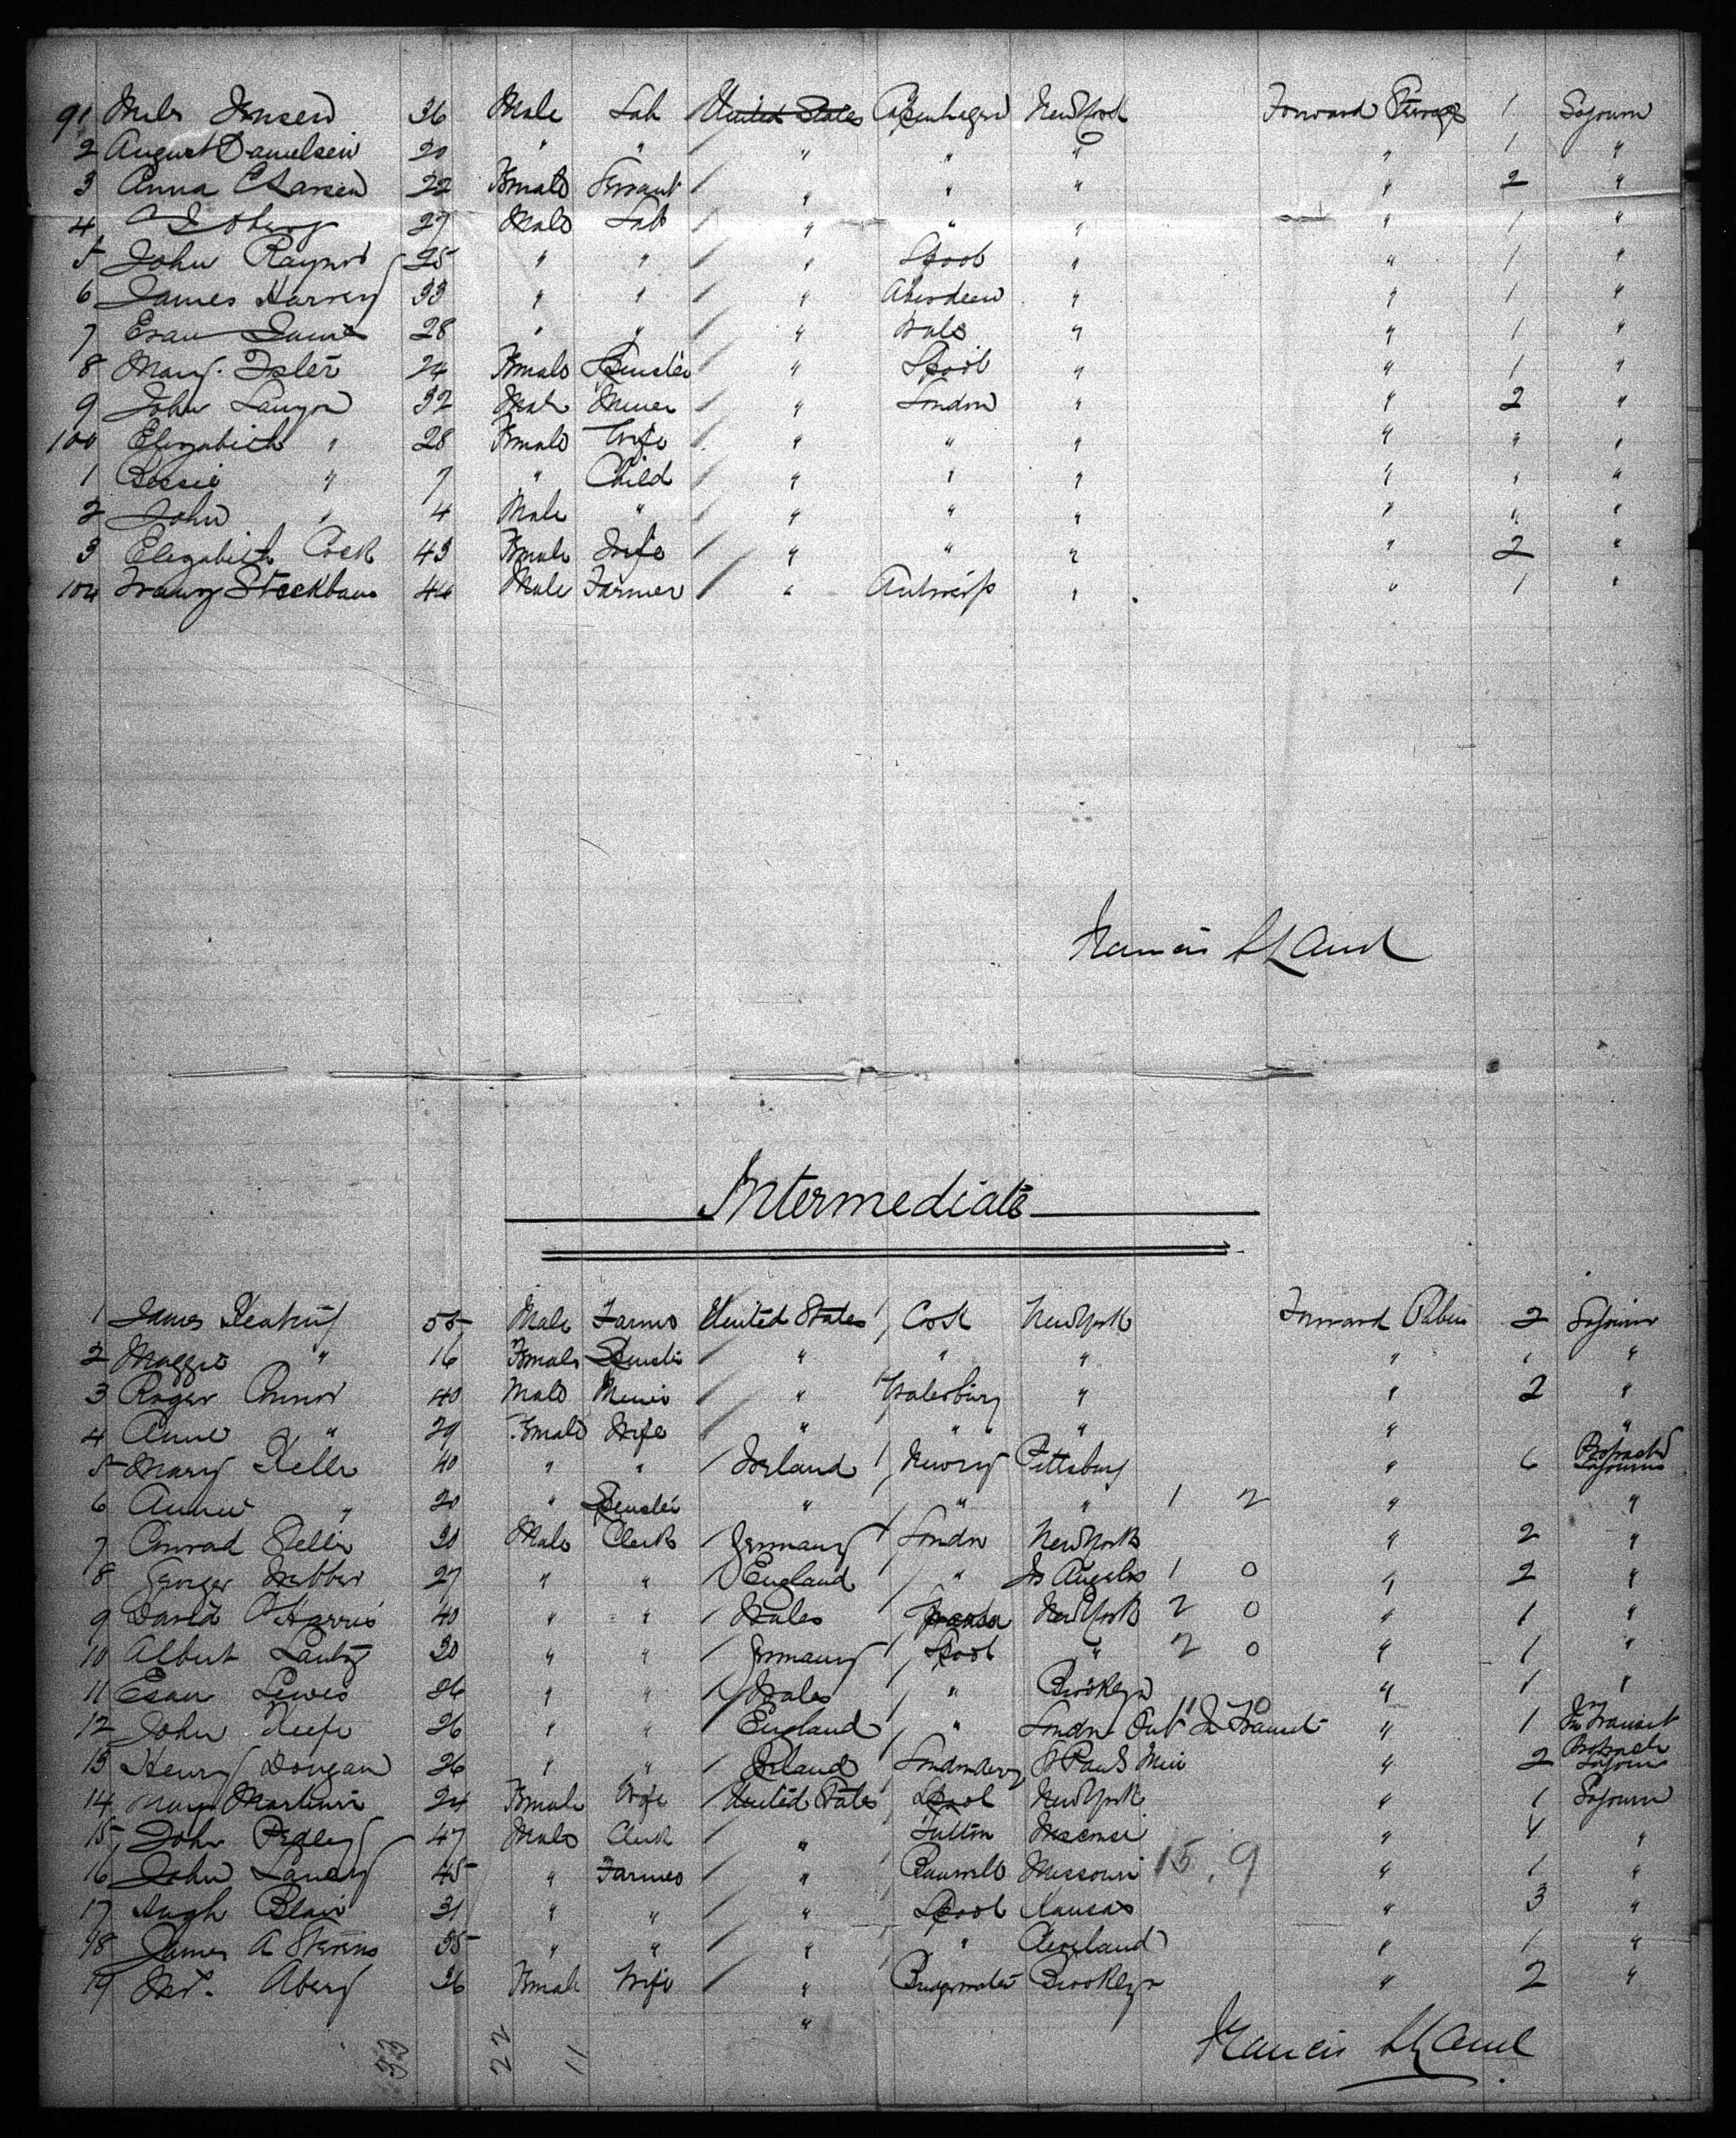 91 Jensen 36 Male Lab United States Copenhagen New York Forward Steerage 1 Sojourn
2 August Danielsen 20 " " " " " " 1 "
3 Anna C Larsen 22 Female Servant " " " " 2 "
4 27 Male Lab " " " " 1 "
5 John Raynor 25 " " " Lpool " " 1 "
6 James Harvey 33 " " " Aberdeen " " 1 "
7 Evan 28 " " " Wales " " 1 "
8 Mary 24 Female Spinster " Lpool " " 1 "
9 John Langon 32 Male Miner " London " " 2 "
100 Elizabeth " 28 Female Wife " " " " " "
1 Bessie " 7 " Child " " " " " "
2 John " 4 Male " " " " " " "
3 Elizabeth Cock 43 Female Wife " " " " 2 "
104 44 Male Farmer " Antwerp " " 1 "
Francis S Land
Intermediate
1 James Keating 55 Male Farmer United States Cork New York Forward Cabin 2 Sojourn
2 Maggie " 16 Female Spinster " " " " " "
3 Roger Connor 40 Male Miner " " " 2 "
4 Anne " 29 Female Wife " " " " "
5 Mary Kelly 40 " " Ireland Newry Pittsburg " 6 Protracted Sojourn
6 Annie " 20 " Spinster " " " 1 2 " "
7 Conrad 30 Male Clerk Germany London New York " 2 "
8 George Webber 27 " " England " Los Angelos 1 0 " 2 "
9 David Harris 40 " " Wales New York 2 0 " 1 "
10 Albert Lantz 30 " " Germany Lpool " 2 0 " 1 "
11 Esau Lewis 36 " " Wales " Brooklyn " 1 "
12 John Keefe 26 " " England " London Ont In Transit " 1 In Transit
13 Henry Dougan 26 " " Ireland Londonderry St Paul Min " 2 Protracted Sojourn
14 Mary 24 Female Wife United States Lpool New York " 1 Sojourn
15 John Pedley 47 Male Clerk " " 4 "
16 John 45 " Farmer " Missouri 15.9 " 1 "
17 Hugh Blair 31 " " " Lpool Kansas " 3 "
18 James A Stevens 35 " " " " Cleveland " 1 "
19 Mrs. Abery 36 Female Wife " Bridgwater Brooklyn " 2 "
"
33 22 11
Francis S Land